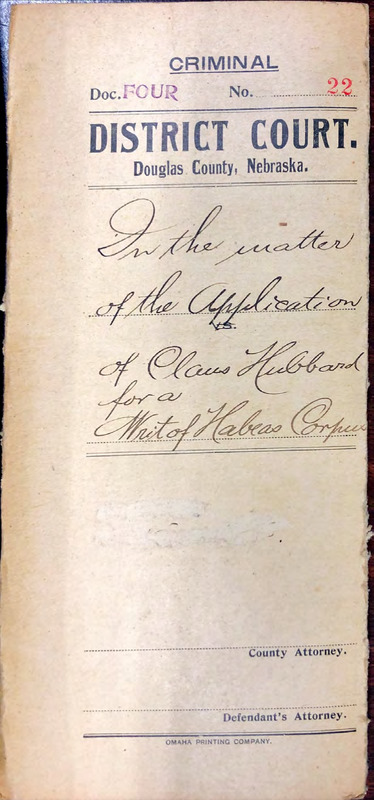 CRIMINAL
Doc. FOUR No. 22
DISTRICT COURT.
Douglas County, Nebraska.
In the matter
of the Application
vs.
of Claus Hubbard
for a
Writ of Habeas Corpus
County Attorney.
Defendant's Attorney.
OMAHA PRINTING COMPANY.